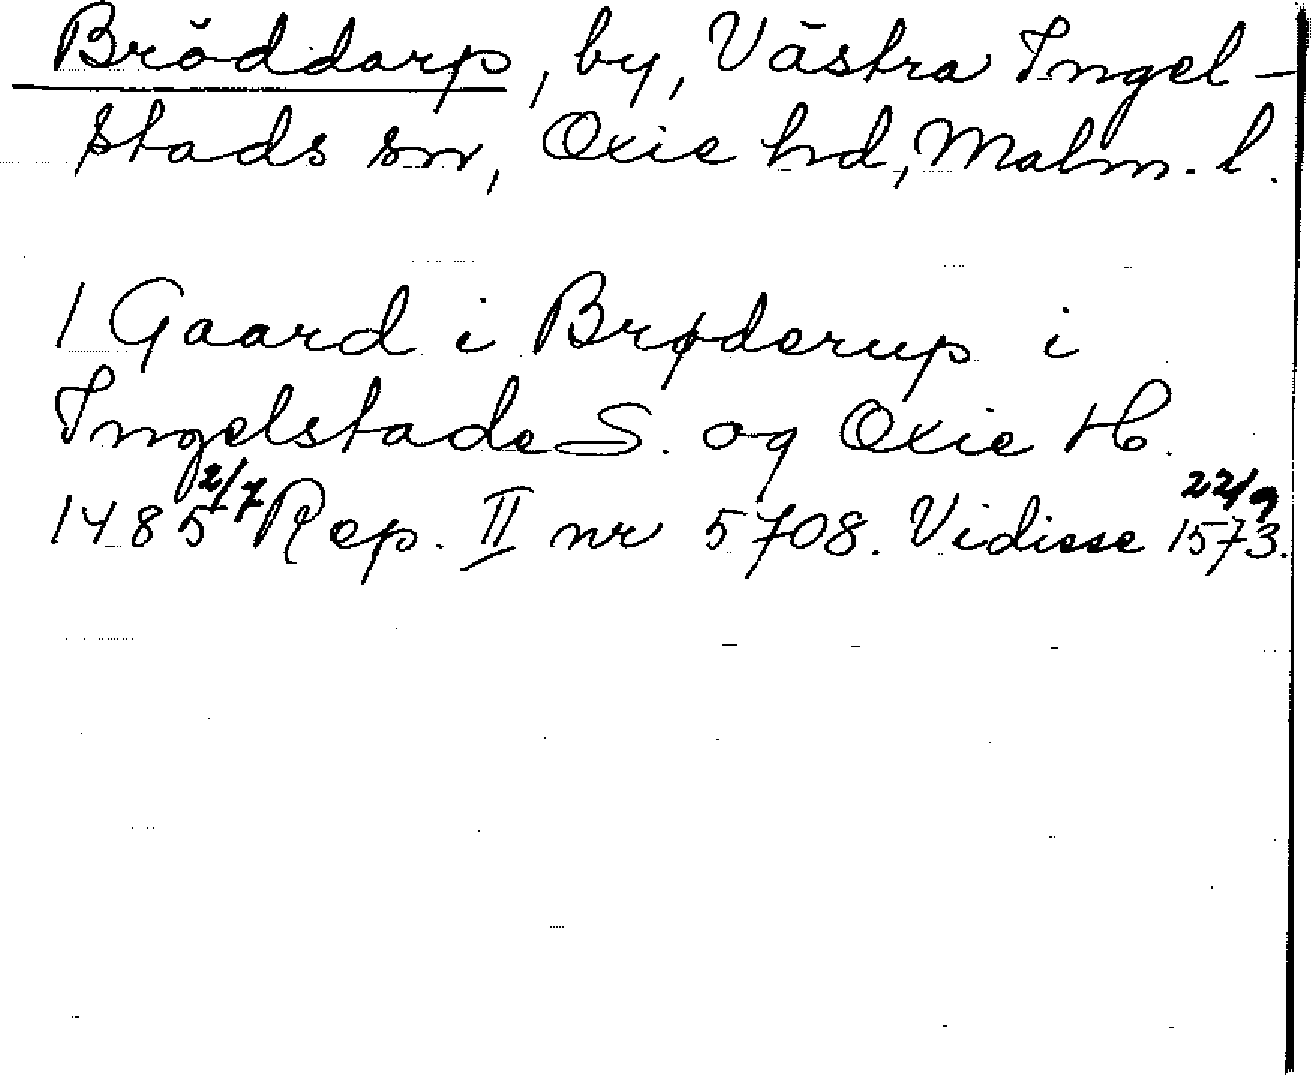 Bröddarp, by, Västra Ingel-
stads sn, Oxie hd, Malm. l.
1 Gaard i Brøderup i
Ingelstade S. og Oxie H.
1485 2/7 Rep. II nr 5708. Vidisse 22/9 1573.